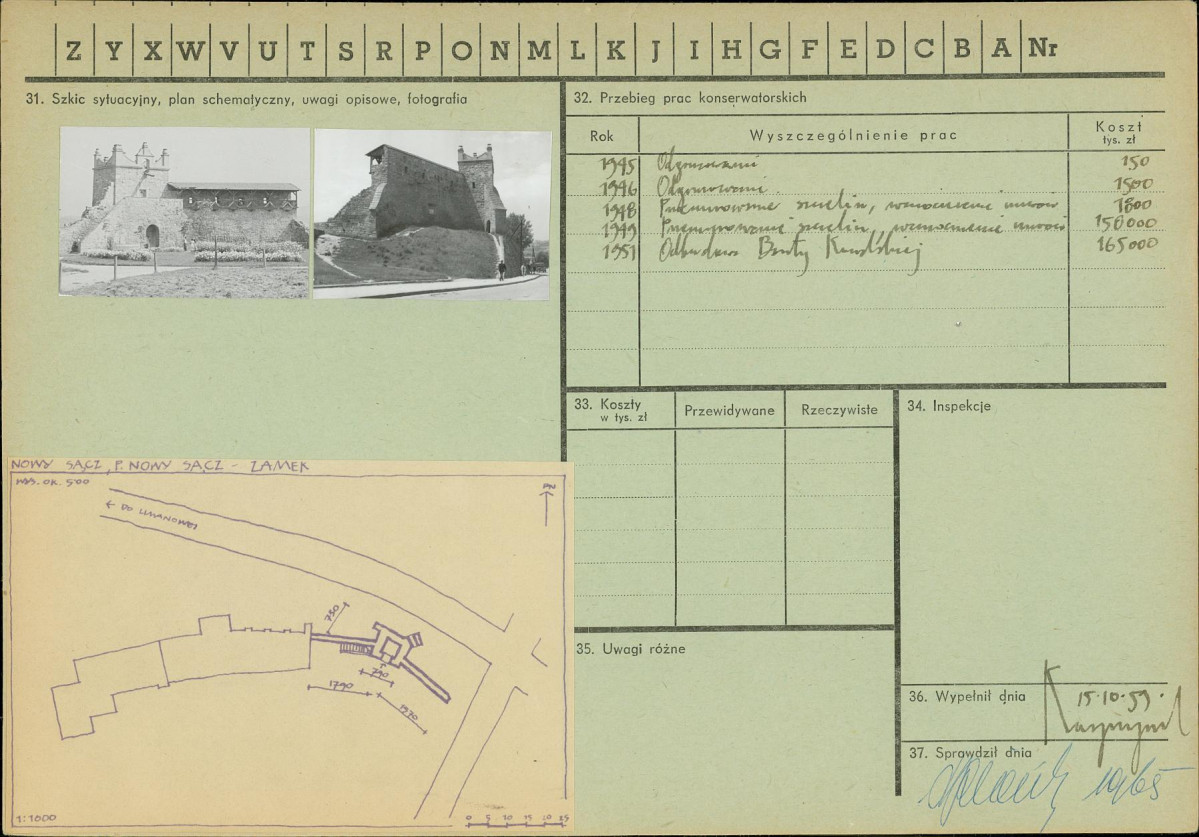 Z Y X W V U T S R P O N M L K J I H G F E D C B A Nr
31. Szkic sytuacyjny, plan schematyczny, uwagi opisowe, fotografia
32. Przebieg prac konserwatorskich
Rok Wyszczególnienie prac Koszt
tys. zł
1945 Odgruzowanie 150
1946 Odgruzowanie 1500
1948 Przemurowanie szczelin, wzmocnienie murów 1800
1949 Przemurowanie szczelin, wzmocnienie murów 158000
1951 Odbudowa Baszty Kowalskiej 165000
33. Koszty
w tys. zł
Przewidywane Rzeczywiste
34. Inspekcje
NOWY SĄCZ, P. NOWY SĄCZ - ZAMEK
OK. 500
PN
← DO LIMANOWEJ
750
790
1790
1970
1:1000
0 5 10 15
35. Uwagi różne
36. Wypełnił dnia 15.10.59.
37. Sprawdził dnia
1965